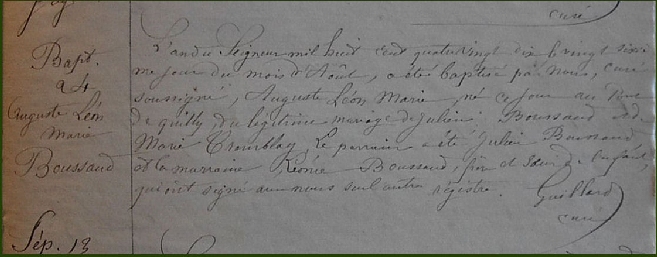 curé
Bapt.
24
Auguste Léon
Marie
Boussaud
L'an du Seigneur mil huit cent quatrevingt dix le vingt
me jour du mois d'Août, a été baptisé par nous, curé
soussigné, Auguste Léon Marie, né ce jour au
de quilly du légitime mariage de Julien Boussaud et de
Marie Tremblay. Le parrain a été Julien Boussaud
et la marraine Renée Boussaud, frère et soeur de l'enfant,
qui ont signé avec nous sur l'autre registre. Guillard
curé
Sép. 13